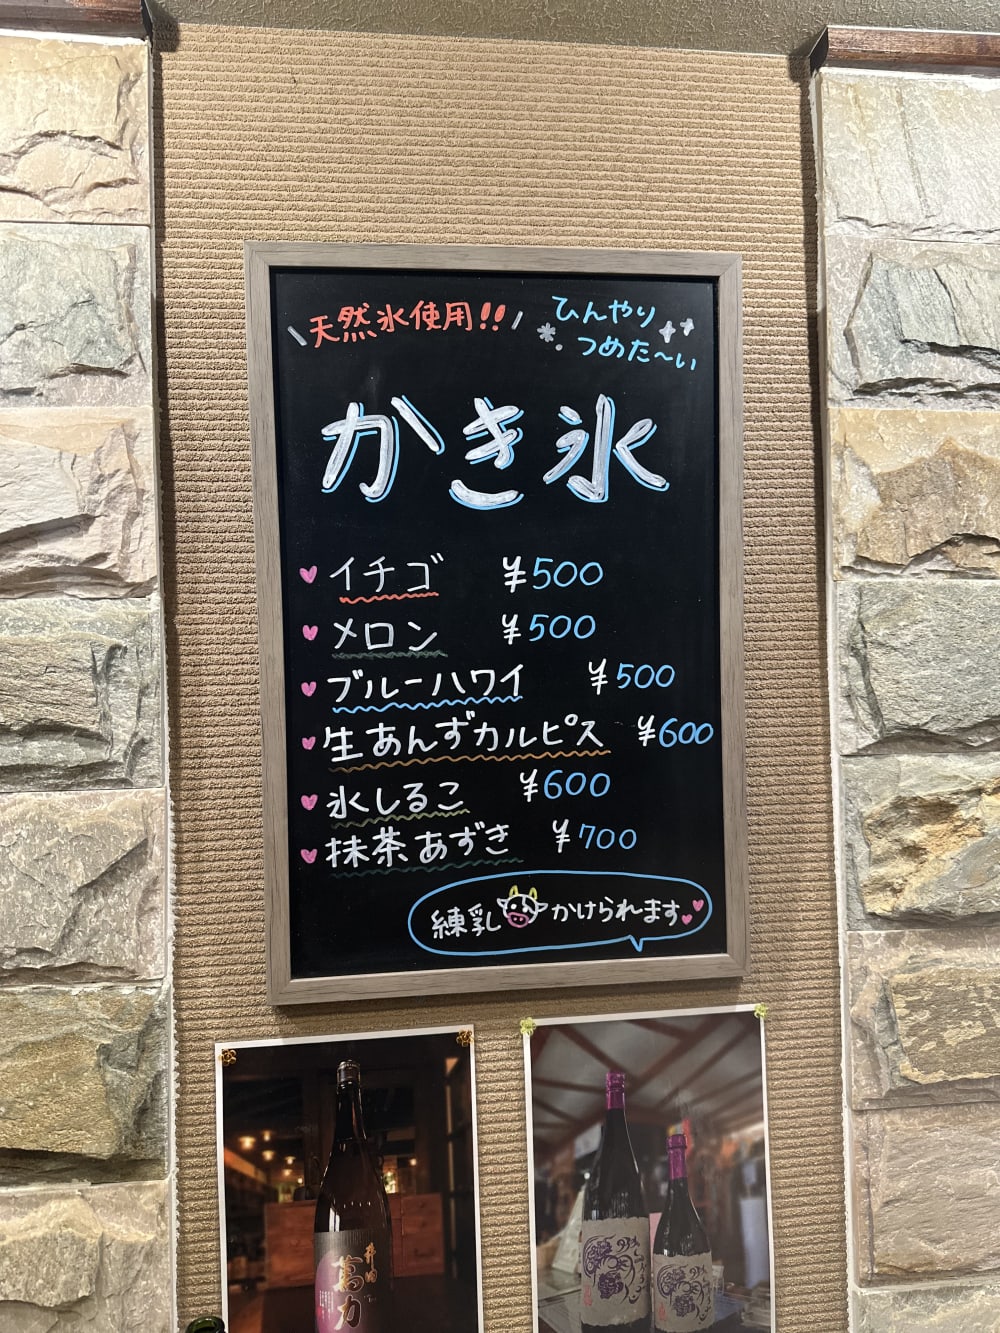 天然氷使用!!
ひんやり
つめた〜い
かき氷
イチゴ ¥500
メロン ¥500
ブルーハワイ ¥500
生あんずカルピス ¥600
氷しるこ ¥600
抹茶あずき ¥700
練乳かけられます
萬力